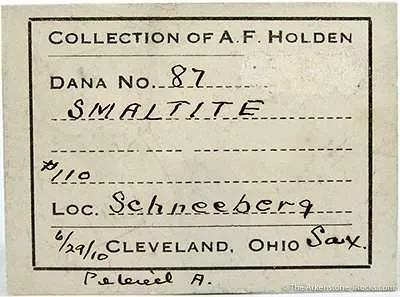 COLLECTION OF A.F. HOLDEN
DANA NO. 87
SMALTITE
#110
LOC. Schneeberg
6/29/10 CLEVELAND, OHIO Sax.
A.
TheArkenstone, iRocks.com